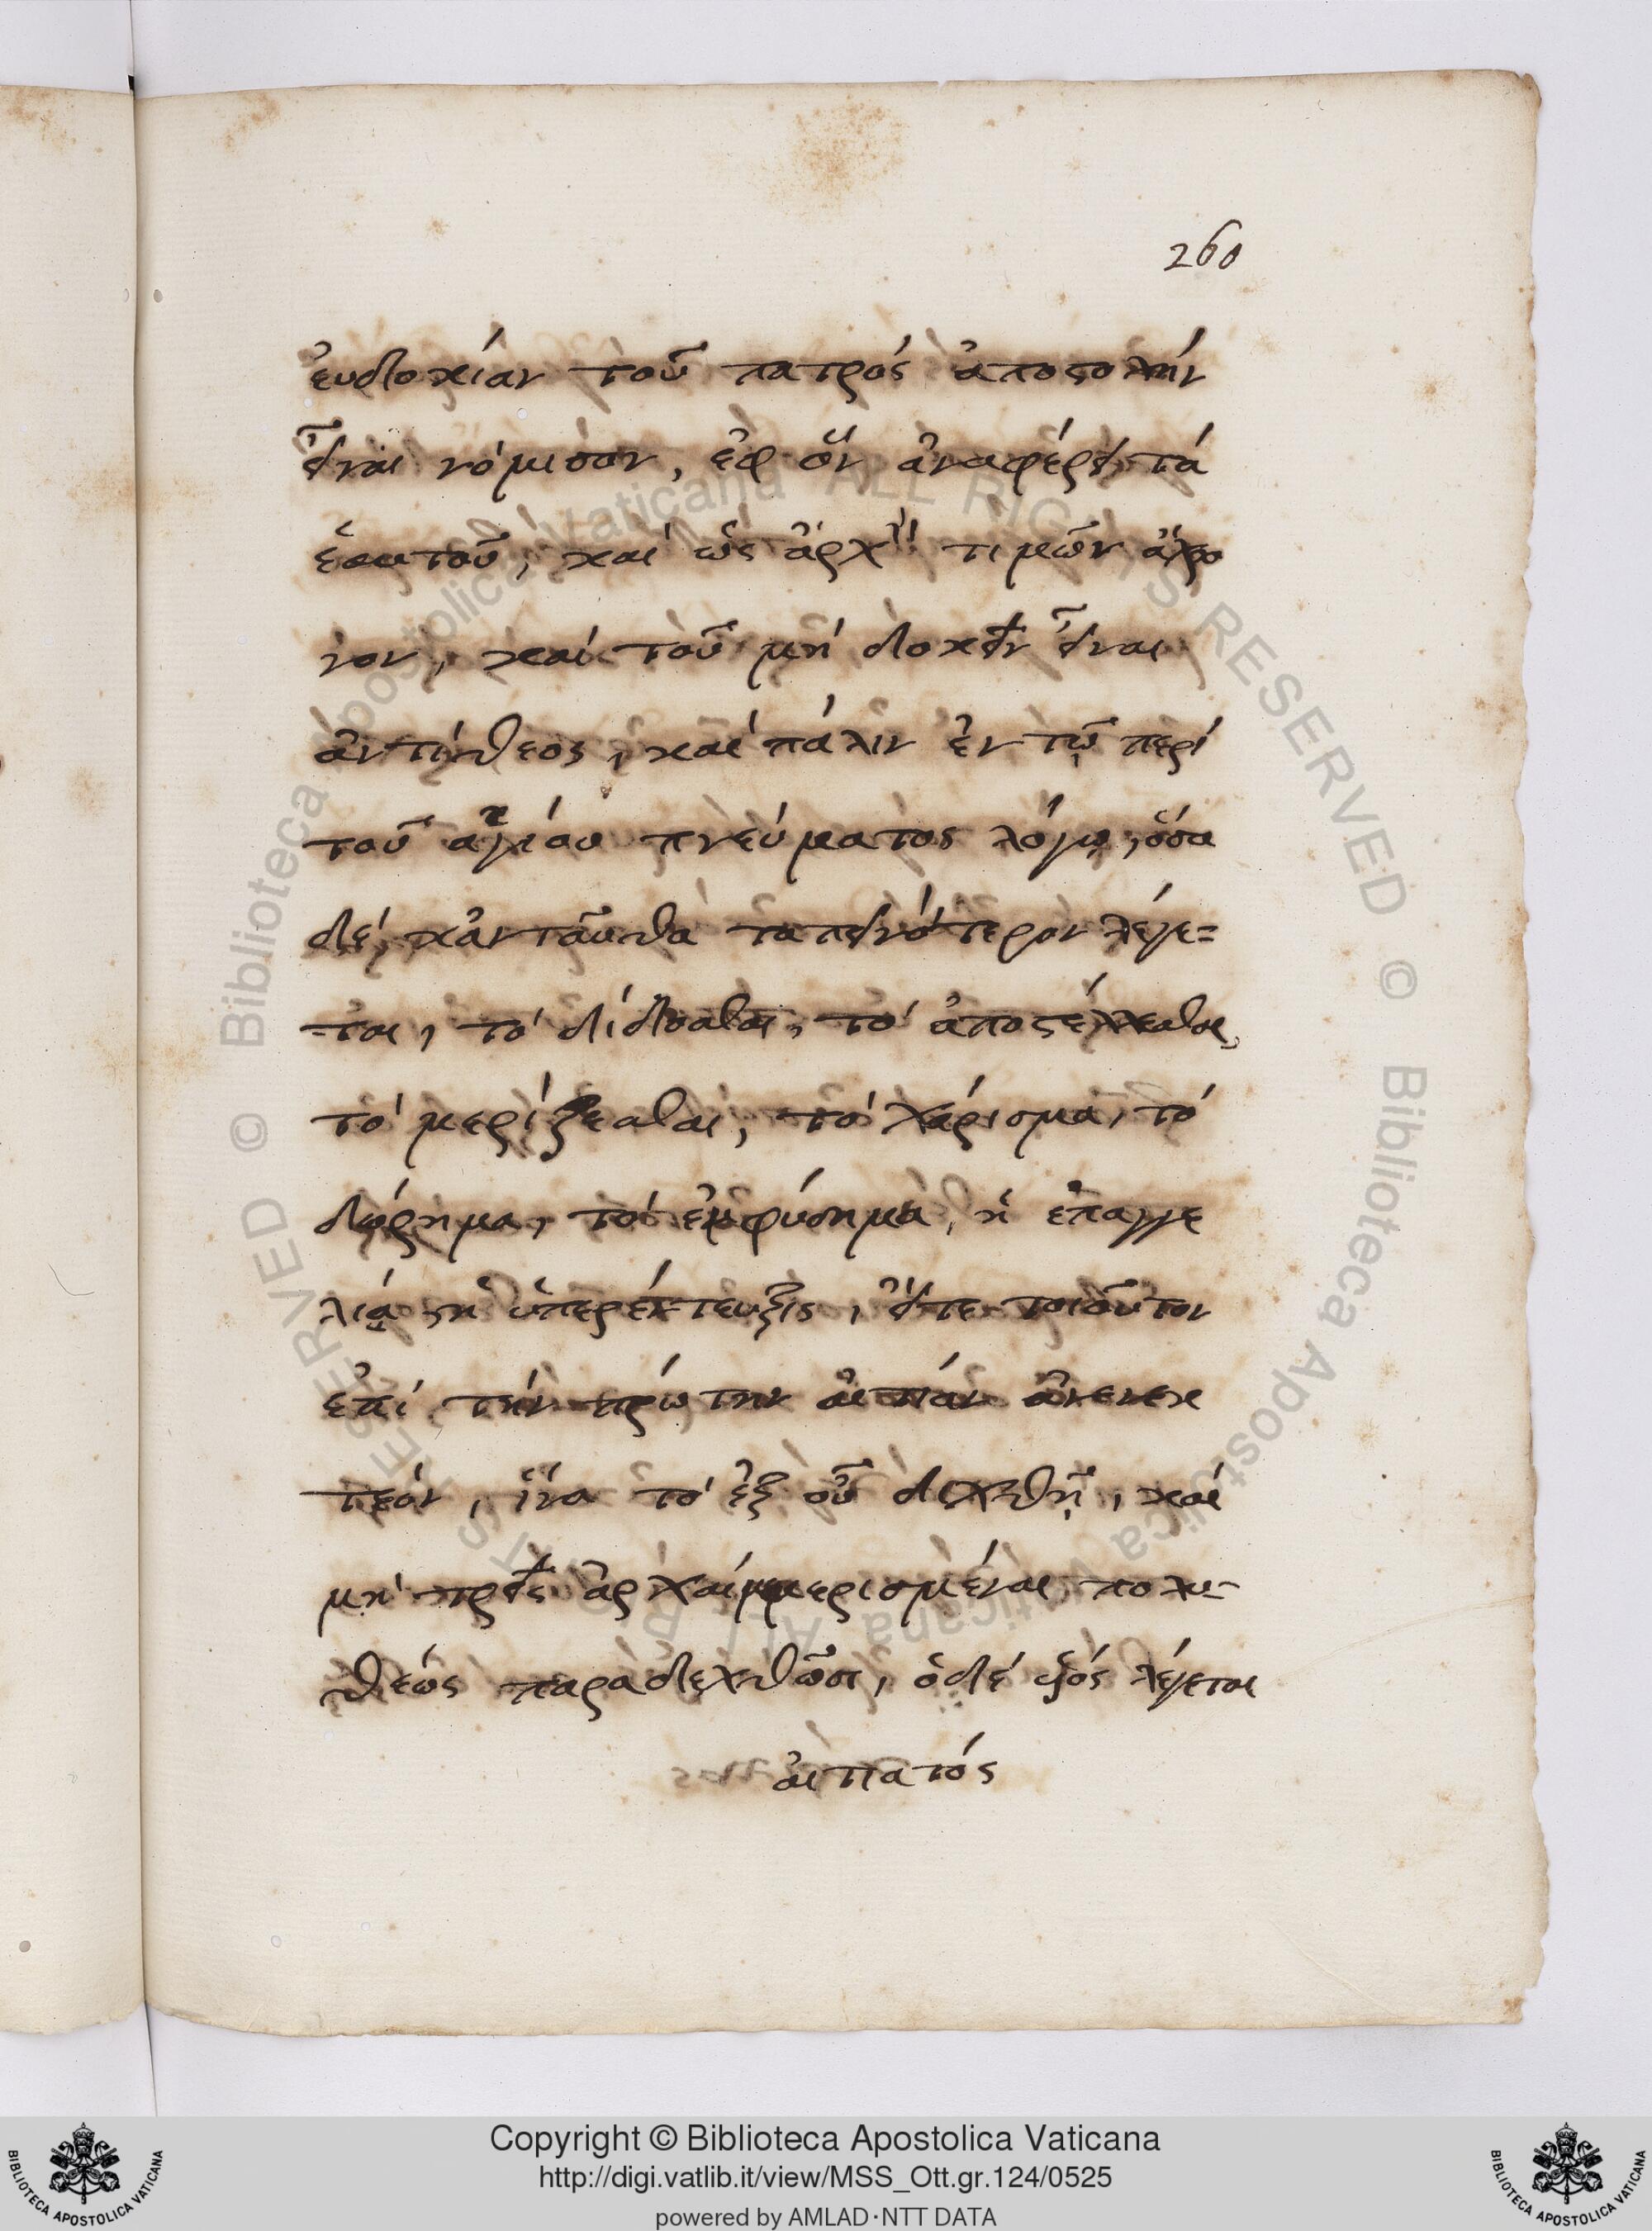 260
ἐυδοκίαν τοῦ πατρός ἀποστολήν
εἶναι νόμισον, ἐφ ὅν ἀναφέρει τά
ἑαυτοῦ, καί ὡς ἀρχὴν τιμῶν ἄχρο
νον, καί τοῦ μή δοκεῖν εἶναι
ἀντίθεος, καί πάλιν ἐν τῷ περί
τοῦ ἁγίου πνεύματος λόγῳ, ὅσα
δέ, κἀνταῦθα ταπεινότερον λέγε=
=ται, τό δίδοσθαι, τό ἀποστέλλεσθαι,
τό μερίζεσθαι, τό χάρισμα, τό
δώρημα, τό ἐμφύσημα, ἡ ἐπαγγε
λία, ἡ ὑπερέντευξις, εἴτε τοιοῦτον
ἐπί τήν πρώτην αἰτίαν ἀνενεκ
τεόν, ἵνα τό ἐξ οὗ δειχθῇ, καί
μή τρεῖς ἀρχαί μεμερισμέναι πολυ-
θεώς παραδεχθῶσι, ὁ δέ υἱός λέγεται
αἰτιατός
Biblioteca Apostolica Vaticana ALL RIGHTS RESERVED ©
Biblioteca Apostolica Vaticana ALL RIGHTS RESERVED ©
Copyright © Biblioteca Apostolica Vaticana
http://digi.vatlib.it/view/MSS_Ott.gr.124/0525
powered by AMLAD·NTT DATA
BIBLIOTECA APOSTOLICA VATICANA
BIBLIOTECA APOSTOLICA VATICANA